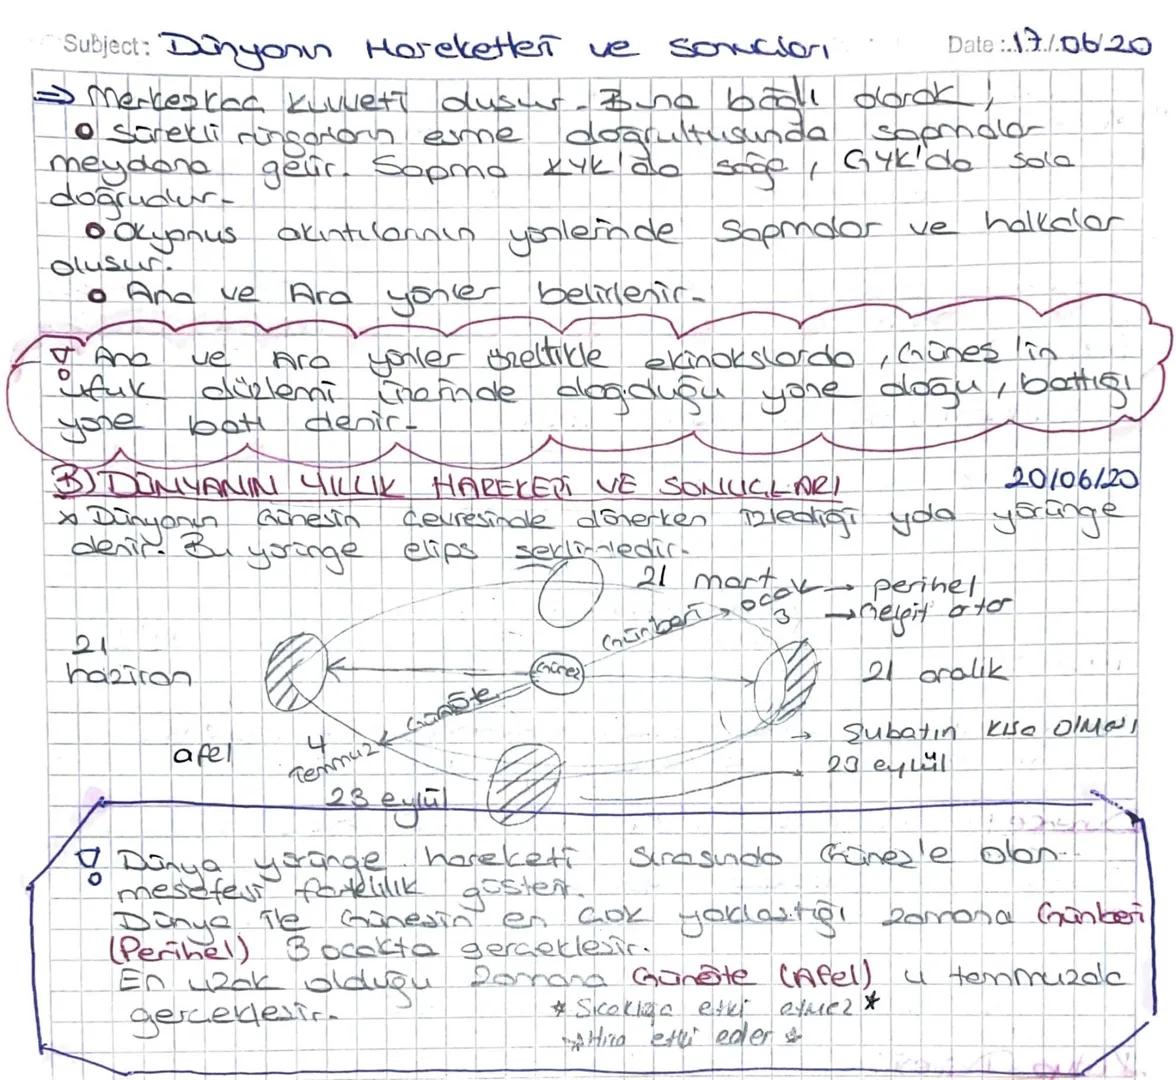 Subject: Dünyanın Hareketleri ve Sonuçları Date: 17/06/20
⇒ Merkezkaç kuvveti oluşur. Buna bağlı olarak;
o Sürekli rüzgarların esme doğrultusunda sapmalar
meydana gelir. Sapma KYK'da sağa, GYK'da sola
doğrudur.
o Okyanus akıntılarının yönlerinde sapmalar ve halkalar
oluşur.
o Ana ve Ara yönler belirlenir.
Ana ve Ara yönler özellikle ekinokslarda, Güneş'in
ufuk düzlemi üzerinde doğduğu yöne doğu, battığı
yöne batı denir.
B) DÜNYANIN YILLIK HAREKETİ VE SONUÇLARI 20/06/20
* Dünyanın Güneşin çevresinde dönerken izlediği yola yörünge
denir. Bu yörünge elips şeklindedir.
21 mart
ocak → perihel
3 → gelgit artar
Günberi
21
haziran
Güneş
21 aralık
Günöte
→ Şubatın kısa olması
afel
4
Temmuz
23 eylül
23 eylül
Dünya yörünge hareketi sırasında Güneş'le olan
mesafesi farklılık gösterir.
Dünya ile Güneşin en çok yaklaştığı zamana Günberi
(Perihel) 3 ocakta gerçekleşir.
En uzak olduğu zamana Günöte (Afel) 4 temmuzda
gerçekleşir.
* Sıcaklığa etki etmez *
* Hıza etki eder *